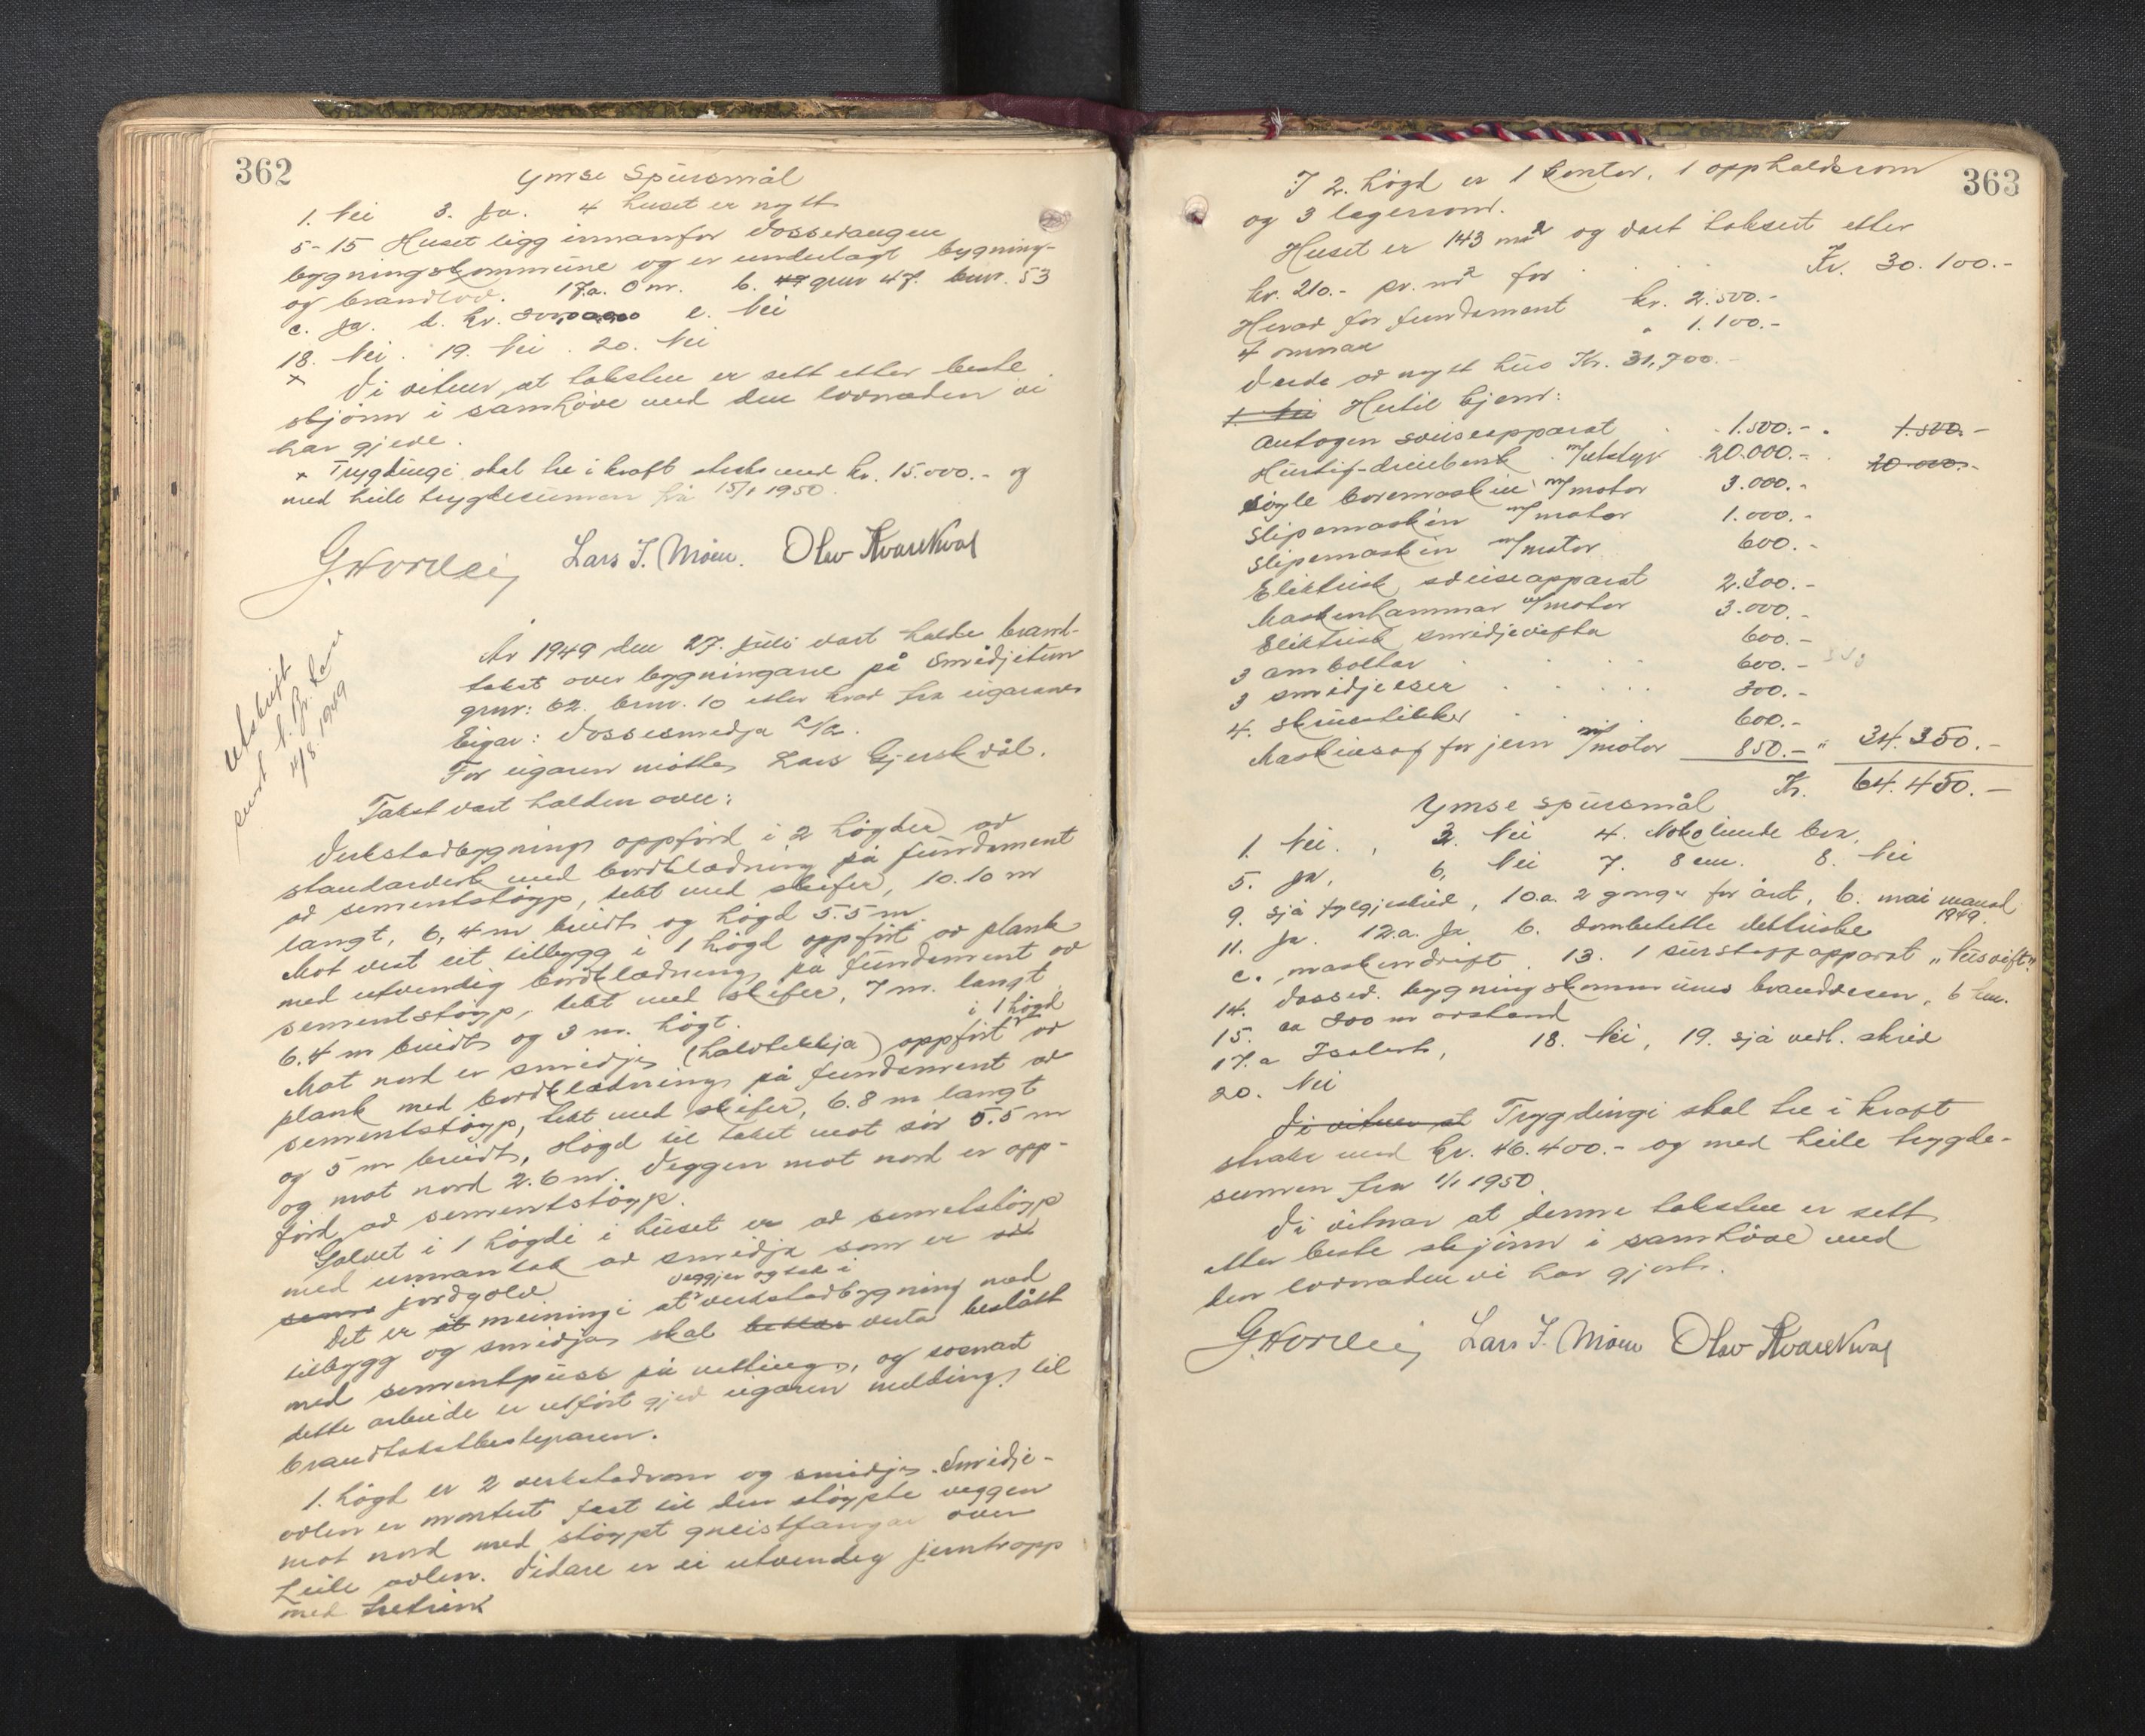 362
Ymse Spursmål
1. Nei 3. Ja. 4 huset er nytt
5-15 Huset ligg innanfor Vossevangen
bygningskommune og er underlagt bygning-
og brandlov. 17.a. 0 m. b. gnr 47. bnr. 53
c. Ja. d. kr. e. Nei
18. Nei. 19. Nei. 20. Nei
x Vi vitnar at taksten er sett etter beste
skjønn i samhöve med den lovnaden vi
har gjeve.
x Trygdingi skal tre i kraft straks med kr. 15.000.- og
med heile trygdesumen frå 15/1 1950.
Lars I. Møen. Olav Kvarekval
Utskrift
sendt
4/8. 1949
År 1949 den 27. juli vart halde brand-
takst over bygningane på Smidjetun
gnr: 62. bnr. 10 etter krav fra eigaren
Eigar: Vossesmidja A/L.
For eigaren møtte Lars Gjerskvål.
Takst vart halden over:
Verkstadbygning oppförd i 2 högder av
standarverk med bordklædning på fundament
av sementstöyp, tekt med skifer, 10.10 m
langt, 6,4 m breidt og högd 5.5 m.
Mot vest eit tilbygg i 1 högd oppfört av plank
med utvendig bordklædning på fundament av
sementstöyp, tekt med skifer, 7 m. langt
6.4 m breidt og 3 m. högt.
i 1 högd
Mot nord er smidja (halvtekkja) oppfört av
plank med bordklædning på fundament av
sementstöyp, tekt med skifer, 6.8 m langt
og 5 m breidt, Högd til taket mot sör 5.5 m
og mot nord 2.6 m. Veggen mot nord er opp-
förd av sementstöyp.
Golvet i 1 högdi i huset er av sementstöyp
med unnantak av smidja som er
jordgolv
veggjer og tak i
Det er meiningi at verkstadbygning med
tilbygg og smidja skal verta beslått
med sementpuss på netting, og sosnart
dette arbeide er utfört gjev eigaren melding til
brandtakstbestyraren.
1. högd er 2 verkstadrom og smidja. Smidje-
avlen er montert fast til den stöypte veggen
mot nord med stöypt gneistfangar over
heile avlen. Vidare er ei utvendig jerntropp
med tretrinn
363
I 2. högd er 1 kontor, 1 oppholdsrom
og 3 lagerrom.
Huset er 143 m2 og vart taksert etter
kr. 210.- pr. m2 for Kr. 30.100.-
Herav for fundament kr. 2.500.-
4 omnar " 1.100.-
Verde av nytt hus Kr. 31,700.-
1. Nei Hertil kjem:
Autogen sveiseapparat 1.500.- 1.500.-
Hurtig-dreiebenk m/utstyr 20.000.- 20.000.-
Söyle boremaskin m/motor 3.000.-
Slipemaskin m/motor 1.000.-
Slipemaskin m/motor 600.-
Elektrisk sveiseapparat 2.300.-
Maskinhammar m/motor 3.000.-
Elektrisk smidjevifta 600.-
3 amboltar 600.-
3 smidjeesser 300.-
4. skruestikker 600.-
Maskinsag for jern m/motor 850.- " 34.350.-
Kr. 64.450.-
Ymse spursmål
1. Nei. 3. Nei 4. Noko bra.
5. Ja. 6. Nei 7. 8 cm. 8. Nei
9. sjå fylgjeskriv, 10.a. 2 gongar for året, b. mai maand
1949.
11. Ja. 12.a. Ja b. elektriske
c. maskindrift. 13. 1 apparat
14. Vossev. bygningskommunes brandvesen, 6 km.
15. ca 300 m avstand
17.a Isolert, 18. Nei, 19. sjå vedl. skriv
20. Nei
Vi vitnar at Trygdingi skal tre i kraft
straks med kr. 46.400.- og med heile trygde-
sumen fra 1/1 1950.
Vi vitnar at denne taksten er sett
etter beste skjönn i samhöve med
den lovnaden vi har gjort.
Lars I. Møen Olav Kvarekval